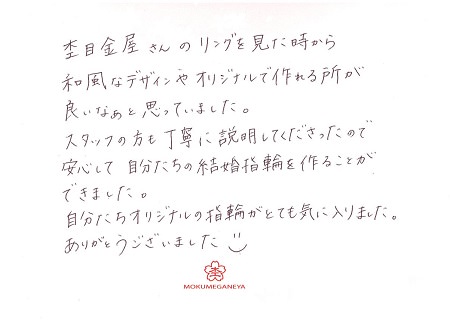 杢目金屋さんのリングを見た時から
和風なデザインやオリジナルで作れる所が
良いなぁと思っていました。
スタッフの方も丁寧に説明してくださったので
安心して自分たちの結婚指輪を作ることが
できました。
自分たちオリジナルの指輪がとても気に入りました。
ありがとうございました
MOKUMEGANEYA